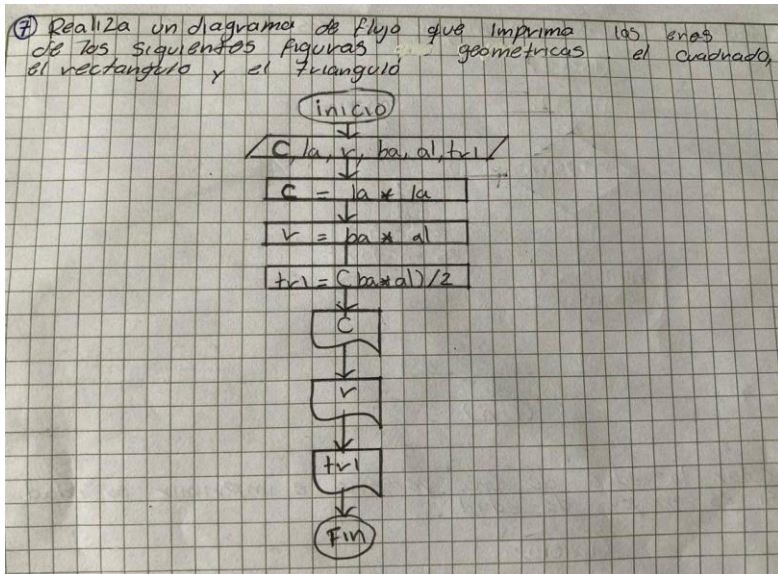 ⑦ Realiza un diagrama de flujo que imprima las areas
de los siguientes figuras geometricas el cuadrado,
el rectangulo y el triangulo
inicio
C, la, r, ba, al, tri
C = la * la
r = ba * al
tri = (ba*al)/2
C
r
tri
Fin